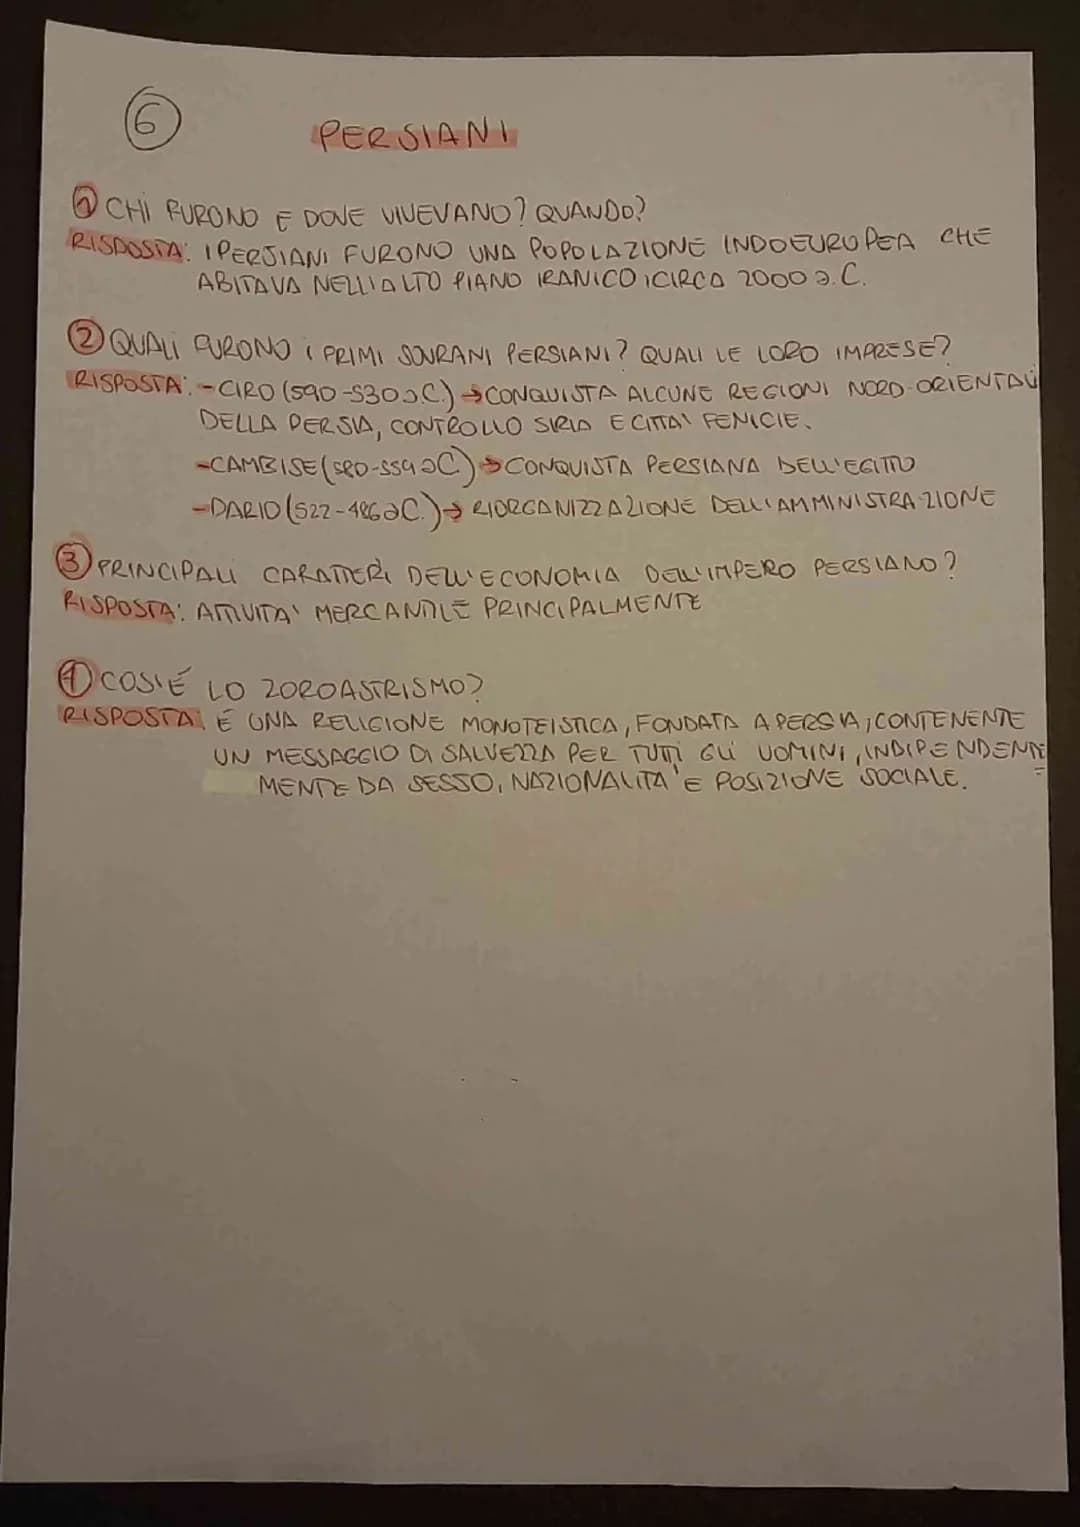 6
PERSIANI
1 CHI FURONO E DOVE VIVEVANO? QUANDO?
RISPOSTA: I PERSIANI FURONO UNA POPOLAZIONE INDOEUROPEA CHE
ABITAVA NELL'ALTO PIANO IRANICO, CIRCA 2000 a.C.
2 QUALI FURONO I PRIMI SOVRANI PERSIANI? QUALI LE LORO IMPRESE?
RISPOSTA: - CIRO (590-530 a.C.) → CONQUISTA ALCUNE REGIONI NORD-ORIENTALI
DELLA PERSIA, CONTROLLO SIRIA E CITTA' FENICIE.
- CAMBISE (580-559 a.C) → CONQUISTA PERSIANA DELL'EGITTO
- DARIO (522-486 a.C.) → RIORGANIZZAZIONE DELL'AMMINISTRAZIONE
3 PRINCIPALI CARATTERI DELL'ECONOMIA DELL'IMPERO PERSIANO?
RISPOSTA: ATTIVITA' MERCANTILE PRINCIPALMENTE
4 COS'É LO ZOROASTRISMO?
RISPOSTA: É UNA RELIGIONE MONOTEISTICA, FONDATA A PERSIA, CONTENENTE
UN MESSAGGIO DI SALVEZZA PER TUTTI GLI UOMINI, INDIPENDENTE
MENTE DA SESSO, NAZIONALITA' E POSIZIONE SOCIALE.